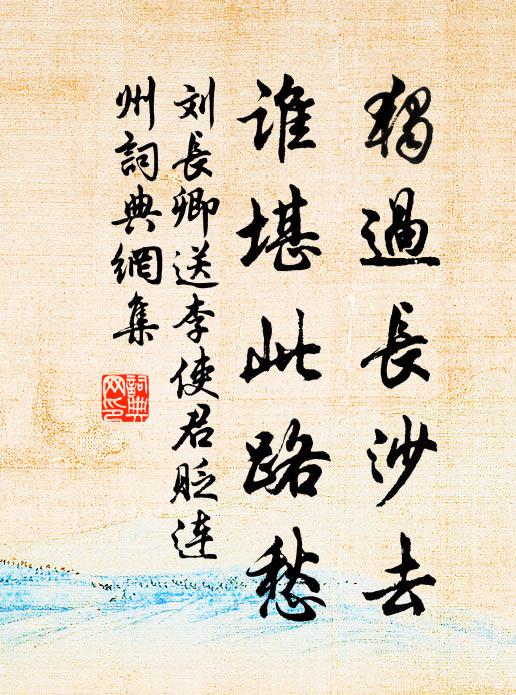 獨過長沙去
誰堪此路愁
刘長卿送李使君貶連
州詞典網集
詞典
网印